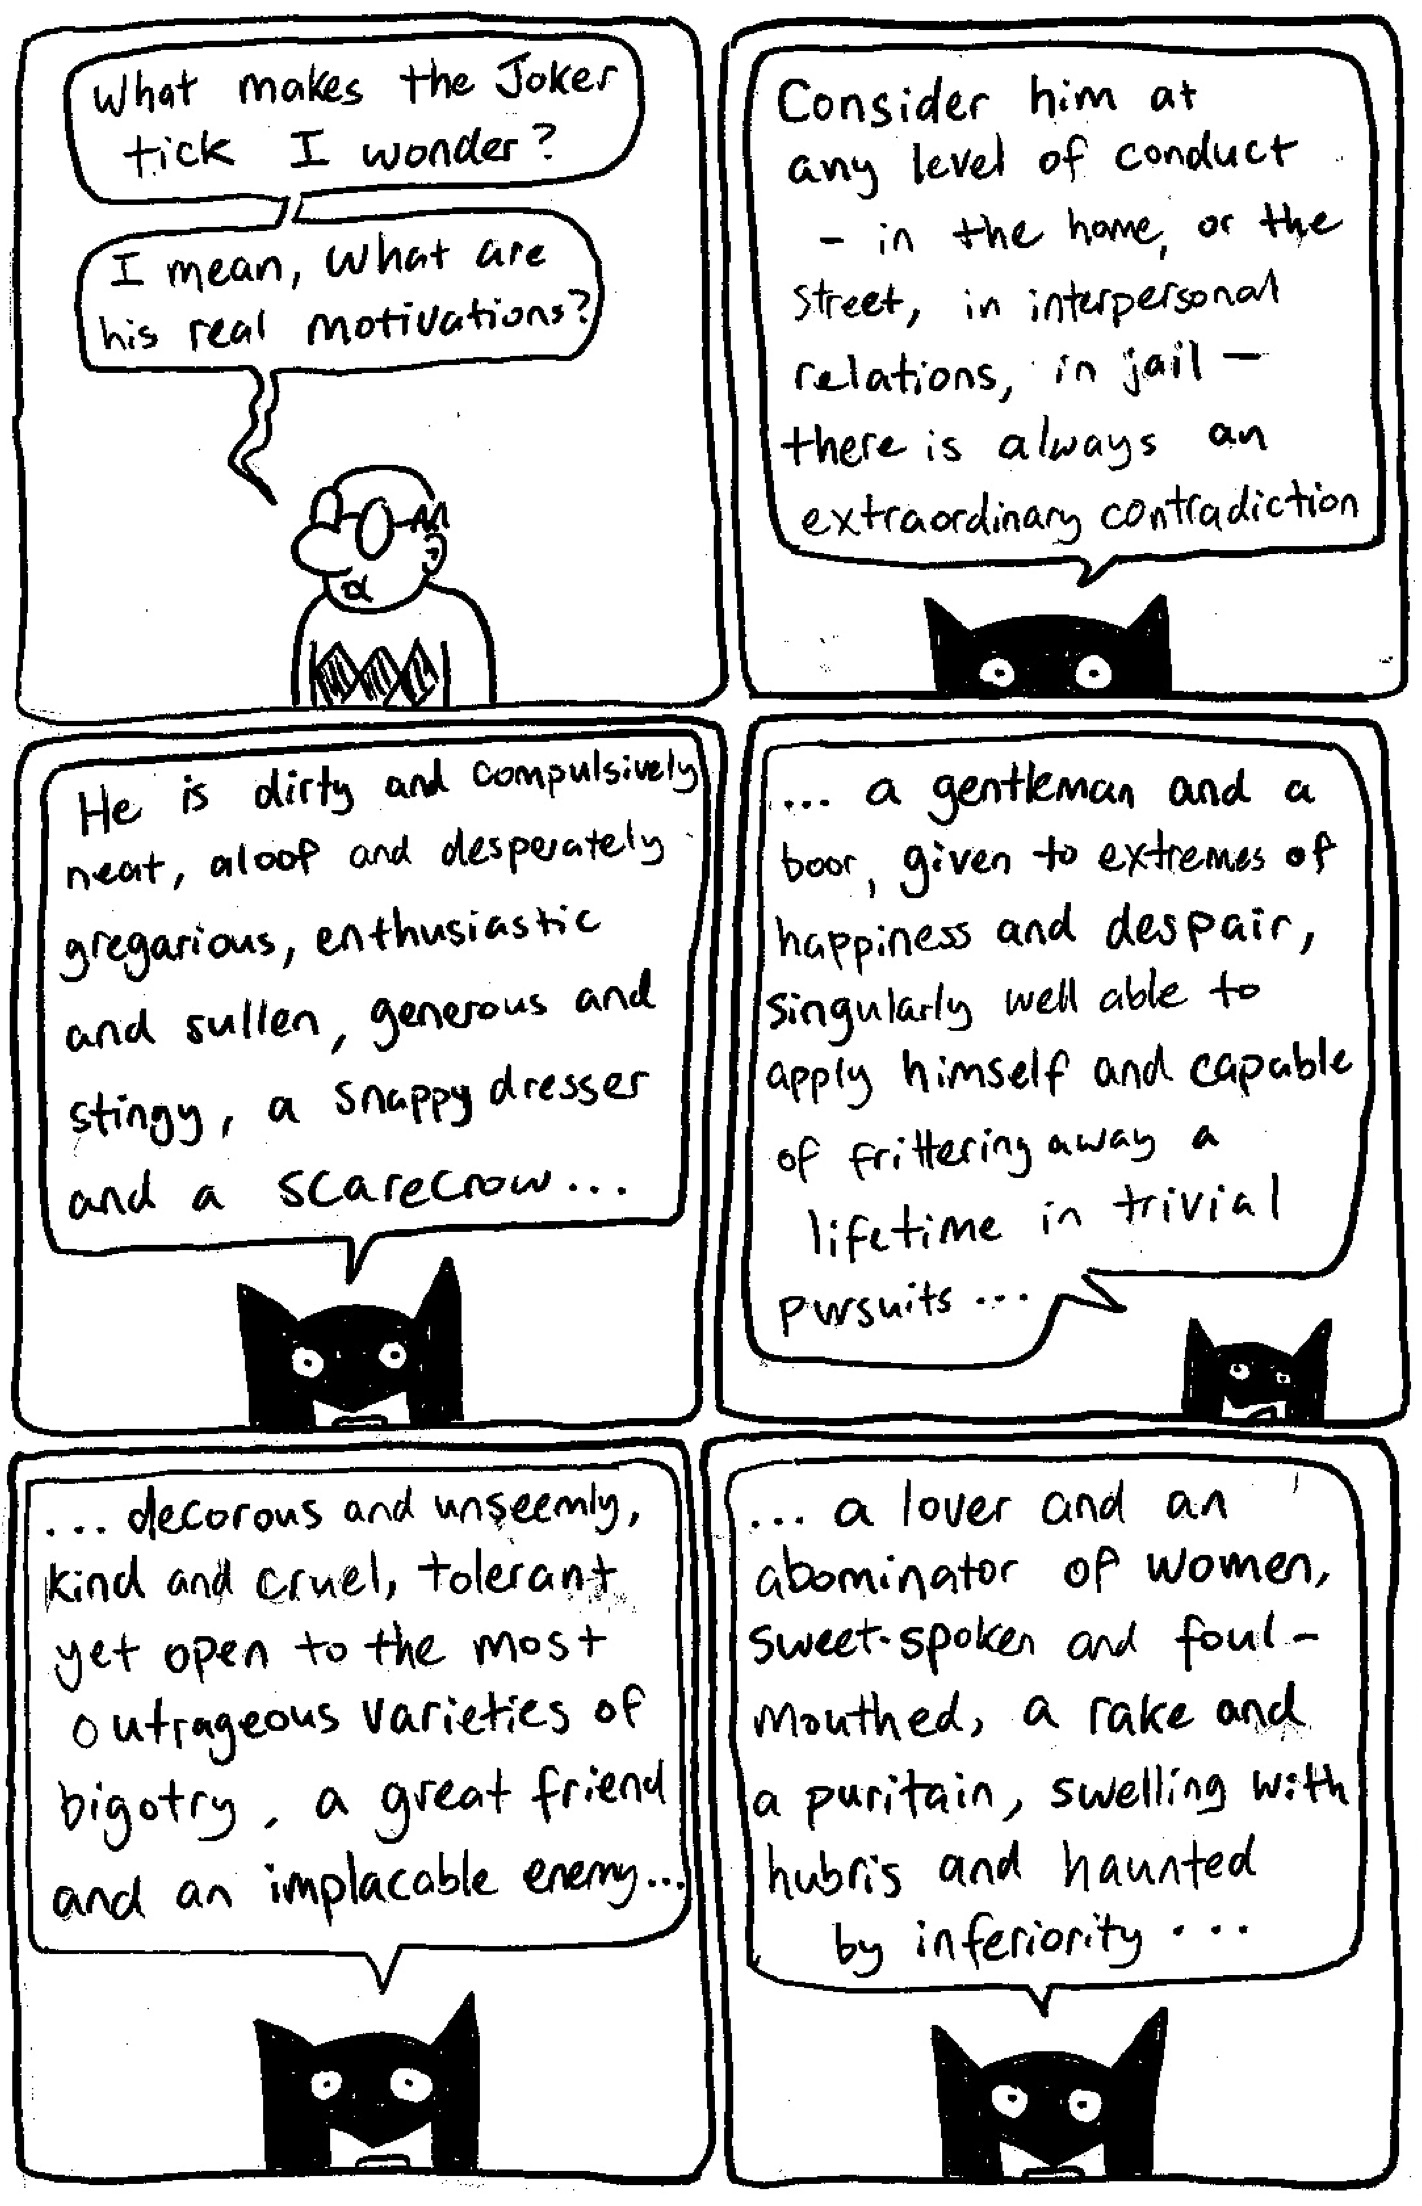 What makes the Joker
tick I wonder?
I mean, what are
his real motivations?
Consider him at
any level of conduct
- in the home, or the
street, in interpersonal
relations, in jail -
there is always an
extraordinary contradiction
He is dirty and compulsively
neat, aloof and desperately
gregarious, enthusiastic
and sullen, generous and
stingy, a snappy dresser
and a scarecrow...
... a gentleman and a
boor, given to extremes of
happiness and despair,
singularly well able to
apply himself and capable
of frittering away a
lifetime in trivial
pursuits...
... decorous and unseemly,
kind and cruel, tolerant
yet open to the most
outrageous varieties of
bigotry, a great friend
and an implacable enemy...
... a lover and an
abominator of women,
sweet-spoken and foul-
mouthed, a rake and
a puritain, swelling with
hubris and haunted
by inferiority...